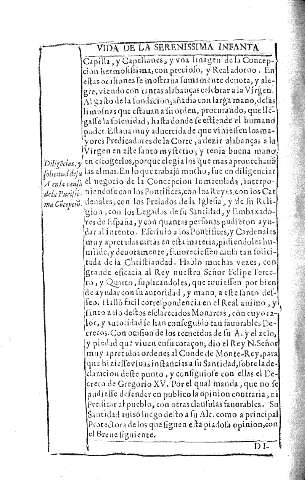 VIDA DE LA SERENISSIMA INFANTA
Capilla, y Capellanes, y vna imagen de la Concep-
cion hermosissima, con precioso, y Real adorno. En
estas ocasiones se mostraua sumamente deuota, y ale-
gre, viendo con tantas alabanças celebrar a la Virgen.
Al gasto de la fundacion, añadia con larga mano, de las
limosnas que estauan a su orden, procurando, que lle-
gasse la solenidad, hasta donde se estiende el humano
poder. Estaua muy aduertida de que viniessen los ma-
yores Predicadores de la Corte, a dezir alabanças a la
Virgen en este santo mysterio, y tenia buena mano
en escogerlos, porque elegia los que mas aprouechauã
las almas. En lo que trabajò mucho, fue en diligenciar
el negocio de la Concepcion Inmaculada, interpo-
niendose con los Pontifices, con los Reyes, con los Car
denales, con los Prelados de la Iglesia, y de su Reli-
gion, con los Legados de su Santidad, y Embaxado-
res de España, y con quantas personas pudieron ayu-
dar al intento. Escriuio a los Pontifices, y Cardenales
muy apretadas cartas en esta materia, pidiendoles hu-
milde, y deuotamente, fauoreciessen causa tan solici-
tada de la Christiandad. Hablò muchas vezes, con
grande eficacia al Rey nuestro Señor Felipe Terce-
ro, y Quarto, suplicandoles, que tuuiessen por bien
de ayudar con su autoridad, y mano, a este santo des-
seo. Hallò facil correspondencia en el Real animo, y
santo zelo destos esclarecidos Monarcas, con cuyo ca-
lor, y autoridad se han conseguido tan fauorables De-
cretos. Con ocasion de los recuerdos de su A. y el zelo,
y piedad que viuen en su coraçon, dio el Rey N. Señor
muy apretados ordenes al Conde de Monte-Rey, para
que hiziesse viuas instancias a su Santidad, sobre la de-
claracion deste punto, y consiguiose con ellas el De-
creto de Gregorio XV. Por el qual manda, que no se
pudiesse defender en publico la opinion contraria, ni
predicar al pueblo, con otras clausulas fauorables. Su
Santidad auisò luego desto a su Alt. como a principal
Protectora de los que siguen esta piadosa opinion, con
el Breue siguiente.
DI-
Diligẽcias, y
solicitud de su
A. en la causa
de la Purissi-
ma Cõcepciõ.